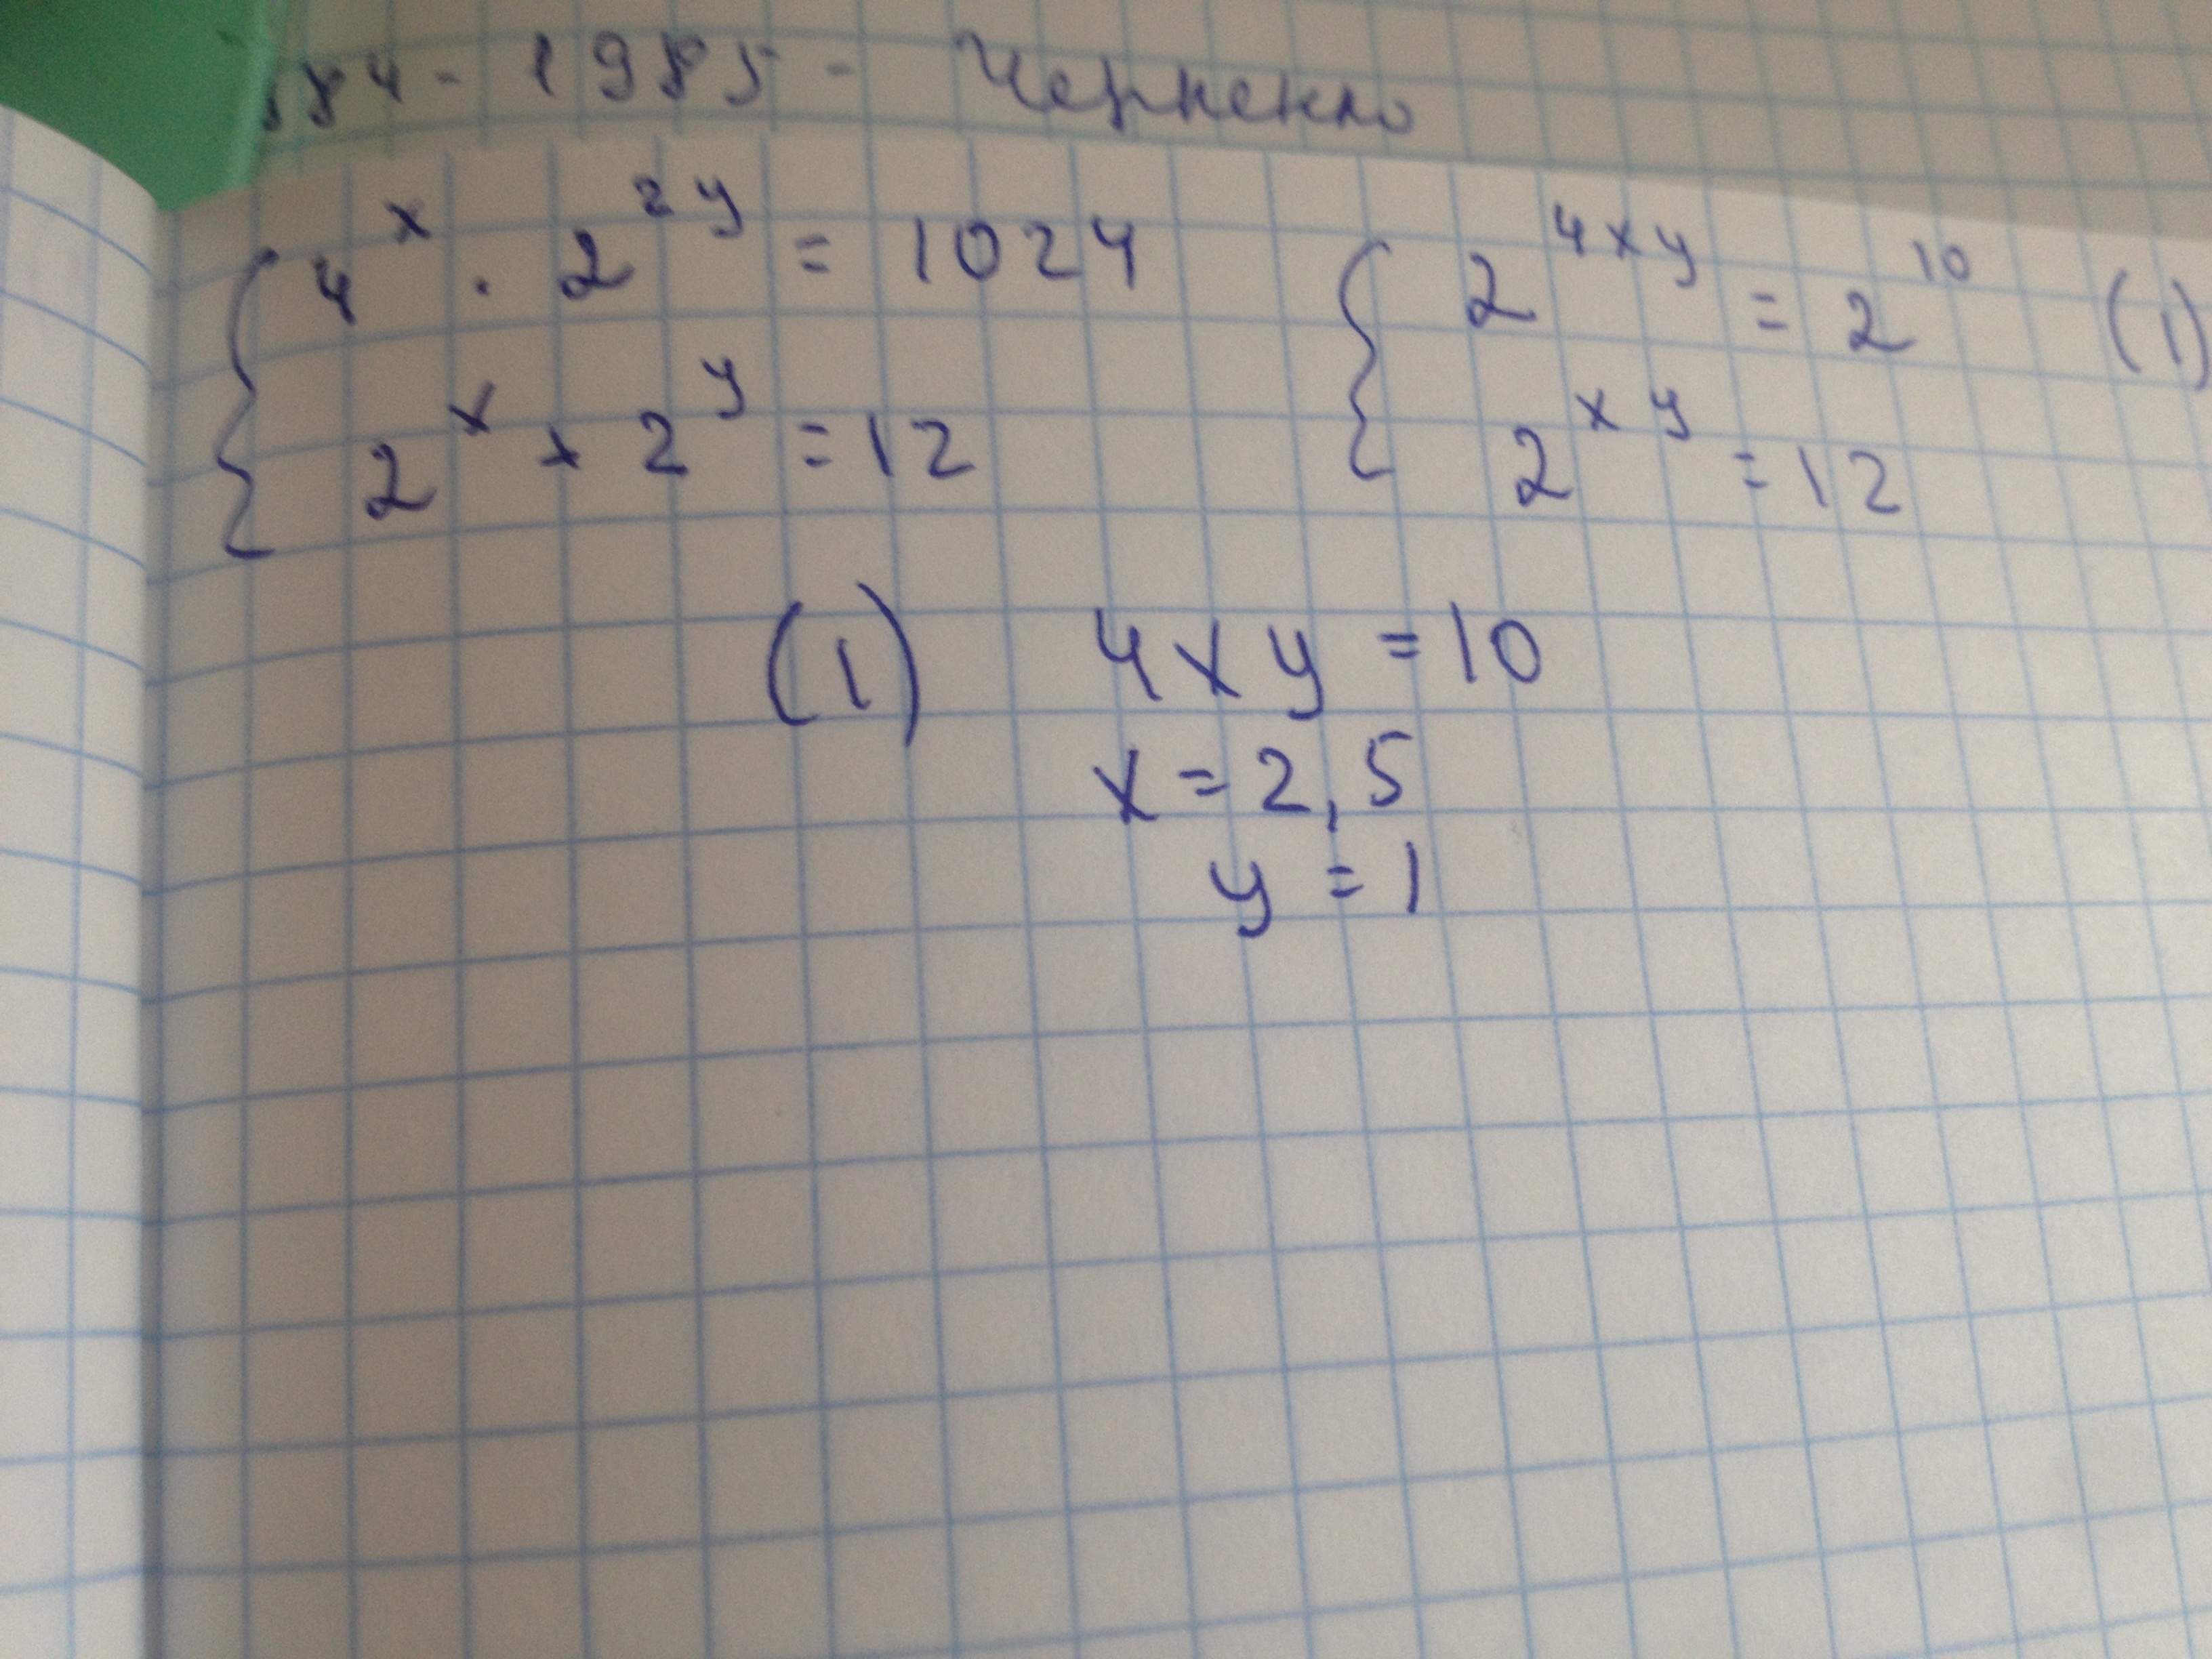 84 - 1985 - Черненко
4^x · 2^{2y} = 1024
2^x + 2^y = 12
2^{4xy} = 2^{10} (1)
2^{xy} = 12
(1) 4xy = 10
x = 2,5
y = 1